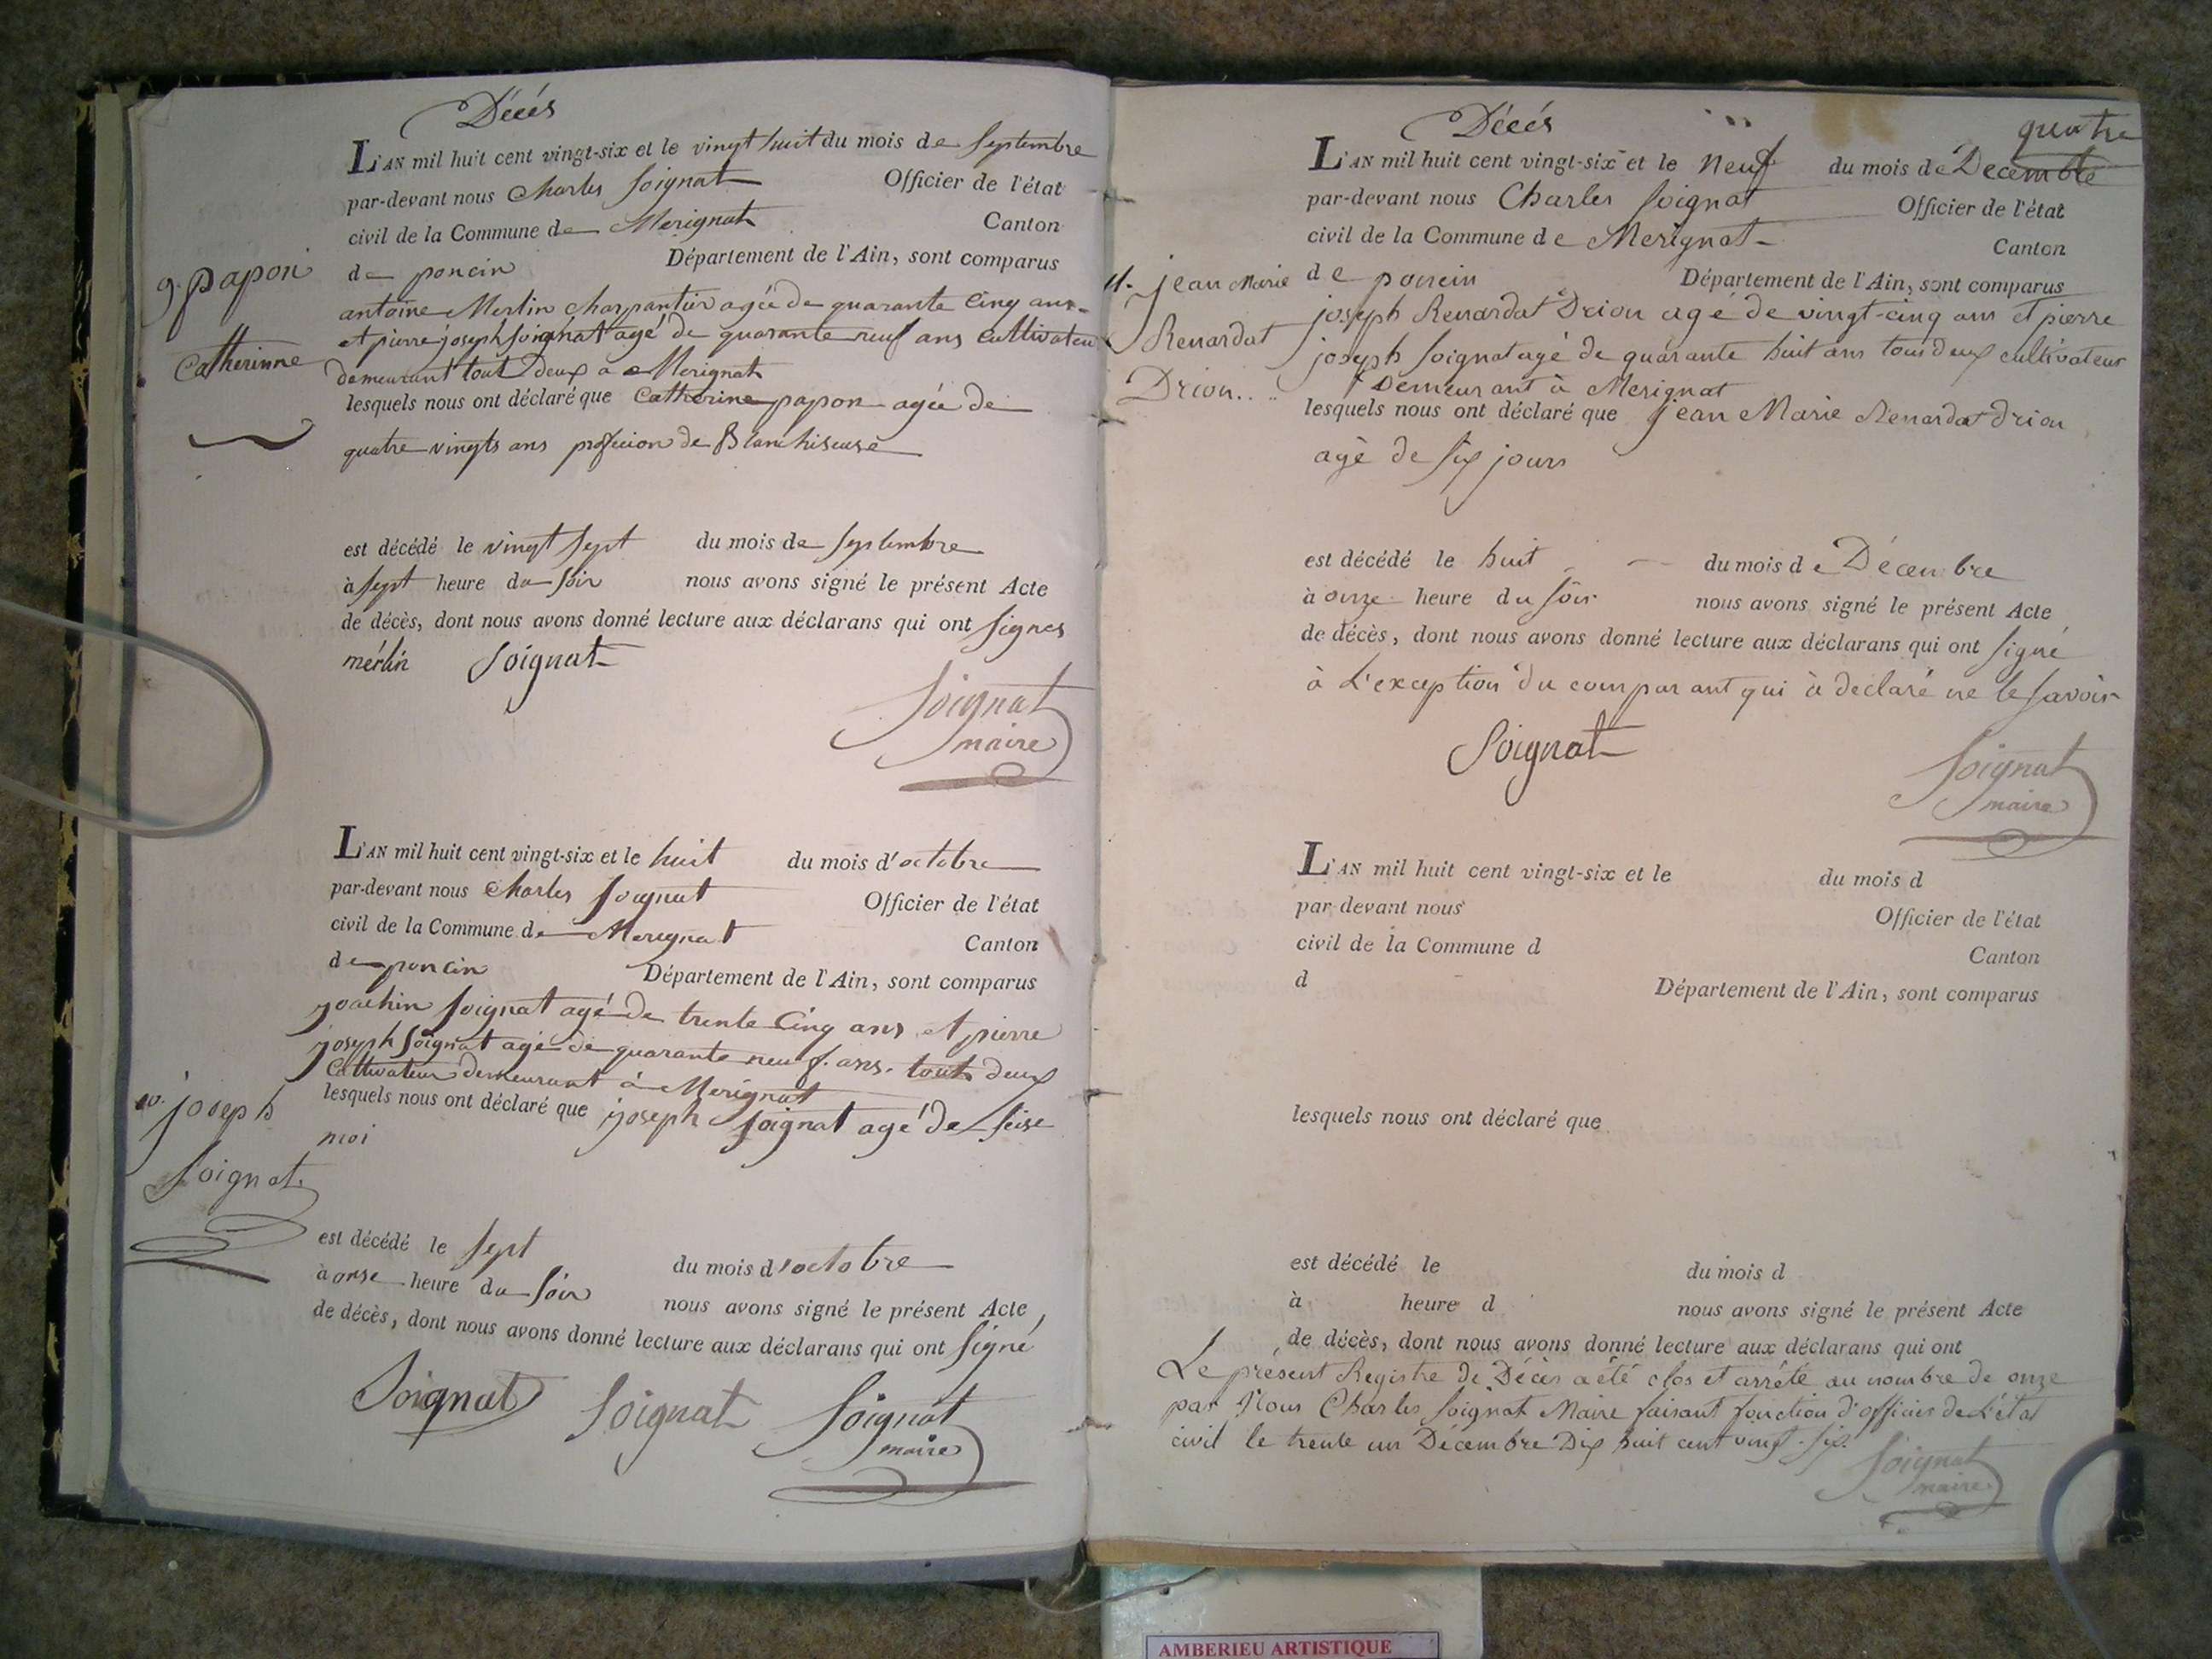 Décés
L'AN mil huit cent vingt-six et le vingt huit du mois de Septembre
par-devant nous Charles Soignat Officier de l'état
civil de la Commune de Merignat Canton
de poncin Département de l'Ain, sont comparus
9. papon
Catherinne
antoine Merlin charpantier agée de quarante Cinq ans
et pierre joseph Soignat agé de quarante neuf ans Cultivateur
demeurant tout deux a Merignat
lesquels nous ont déclaré que Catherine papon agée de
quatre vingts ans proficion de Blanchiseuse
est décédé le vingt sept du mois de septembre
à sept heure du soir nous avons signé le présent Acte
de décès, dont nous avons donné lecture aux déclarans qui ont signes
mérlin Soignat
Soignat
maire
L'AN mil huit cent vingt-six et le huit du mois d'octobre
par-devant nous Charles Soignat Officier de l'état
civil de la Commune de Merignat Canton
de poncin Département de l'Ain, sont comparus
joachin Soignat agé de trente Cinq ans et pierre
joseph Soignat agé de quarante neuf ans. tout deux
Cultivateur demeurant à Merignat
10. joseph
Soignat
lesquels nous ont déclaré que joseph Soignat agé de seise
moi
est décédé le sept du mois d'octobre
à onse heure du soir nous avons signé le présent Acte,
de décès, dont nous avons donné lecture aux déclarans qui ont signé
Soignat Soignat Soignat
maire
Décés
quatre
L'AN mil huit cent vingt-six et le neuf du mois de Decembre
par-devant nous Charles Soignat Officier de l'état
civil de la Commune de Merignat Canton
de poncin Département de l'Ain, sont comparus
11. jean Marie
Renardat
Drion..
joseph Renardat Drion agé de vingt-cinq ans et pierre
joseph Soignat agé de quarante huit ans tous deux cultivateur
Demeurant à Merignat
lesquels nous ont déclaré que jean Marie Renardat Drion
agé de six jours
est décédé le huit du mois de Décembre
à onze heure du soir nous avons signé le présent Acte
de décès, dont nous avons donné lecture aux déclarans qui ont signé
à L'exception du comparant qui à declaré ne le savoir
Soignat
Soignat
maire
L'AN mil huit cent vingt-six et le du mois d
par-devant nous Officier de l'état
civil de la Commune d Canton
d Département de l'Ain, sont comparus
lesquels nous ont déclaré que
est décédé le du mois d
à heure d nous avons signé le présent Acte
de décès, dont nous avons donné lecture aux déclarans qui ont
Le présent Registre de Décès a été clos et arrêté au nombre de onze
par Nous Charles Soignat Maire faisant fonction d'officier de L'état
civil le trente un Décembre Dix huit cent vingt-six.
Soignat
maire
AMBERIEU ARTISTIQUE